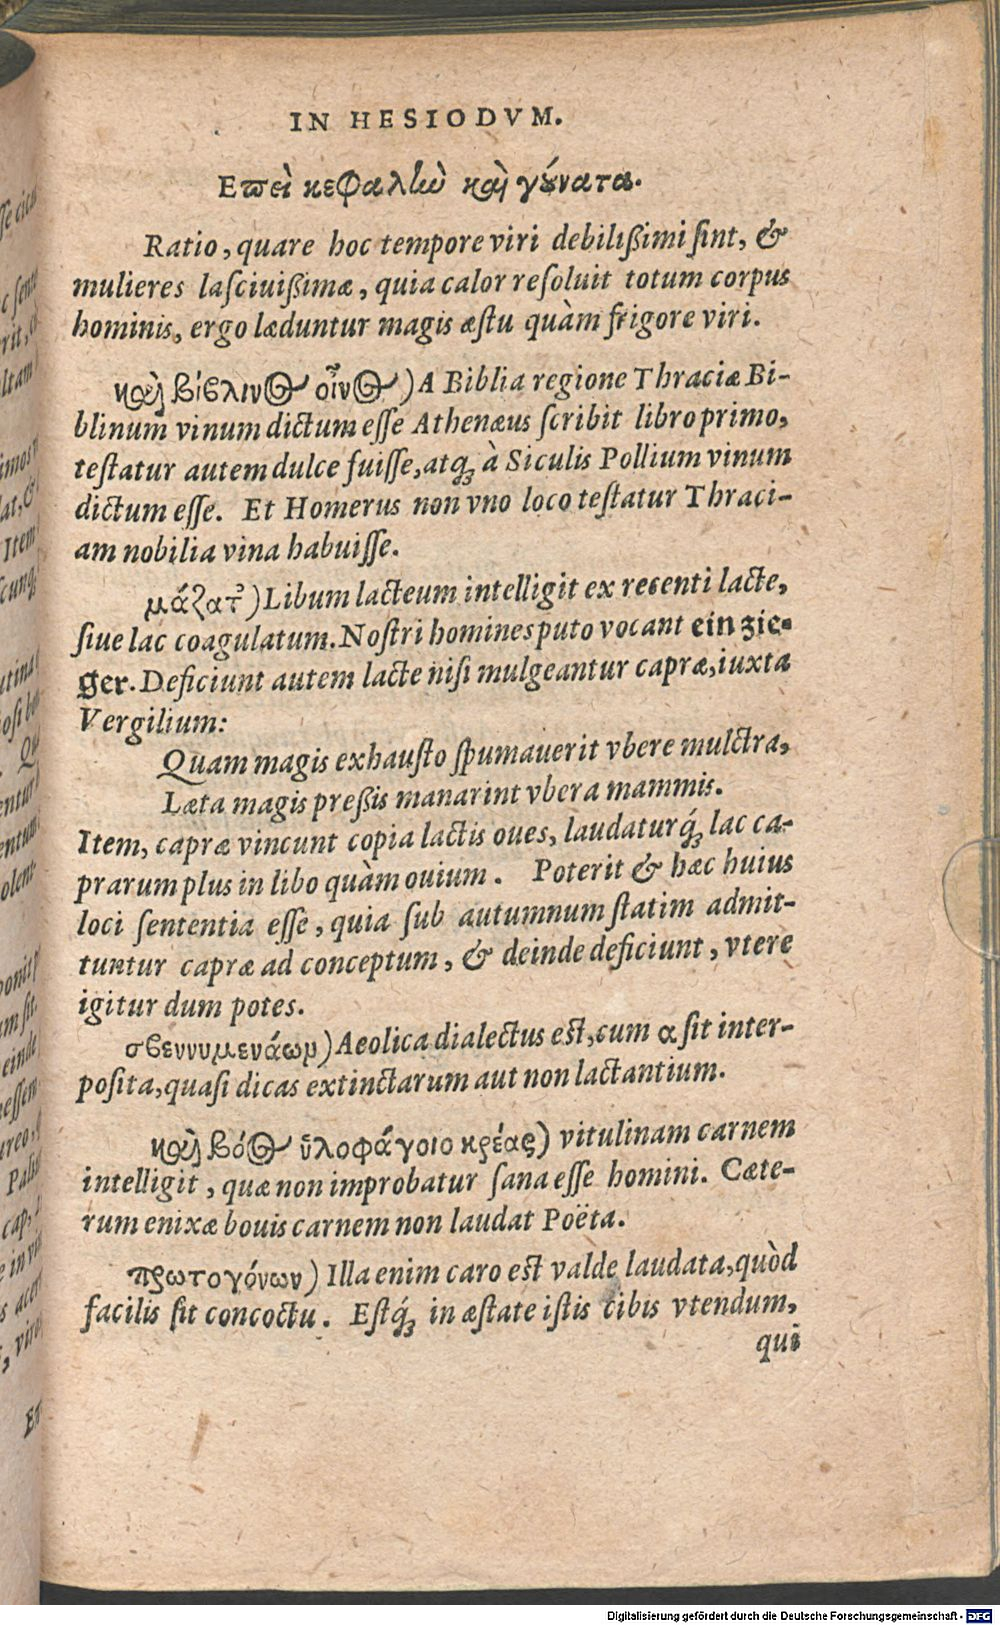 IN HESIODVM.
Επεὶ κεφαλὴν καὶ γούνατα.
Ratio, quare hoc tempore viri debilißimi sint, &
mulieres lasciuißimæ, quia calor resoluit totum corpus
hominis, ergo læduntur magis æstu quàm frigore viri.
καὶ βίβλινος οἶνος) A Biblia regione Thraciæ Bi-
blinum vinum dictum esse Athenæus scribit libro primo,
testatur autem dulce fuisse, atq; à Siculis Pollium vinum
dictum esse. Et Homerus non vno loco testatur Thraci-
am nobilia vina habuisse.
μάζατ’) Libum lacteum intelligit ex recenti lacte,
siue lac coagulatum. Nostri homines puto vocant ein zie-
ger. Deficiunt autem lacte nisi mulgeantur capræ, iuxta
Vergilium:
Quam magis exhausto spumauerit vbere mulctra,
Læta magis preßis manarint vbera mammis.
Item, capræ vincunt copia lactis oues, laudaturq́; lac ca-
prarum plus in libo quàm ouium. Poterit & hæc huius
loci sententia esse, quia sub autumnum statim admit-
tuntur capræ ad conceptum, & deinde deficiunt, vtere
igitur dum potes.
σβεννυμενάων) Aeolica dialectus est, cum α sit inter-
posita, quasi dicas extinctarum aut non lactantium.
καὶ βόος ὑλοφάγοιο κρέας) vitulinam carnem
intelligit, quæ non improbatur sana esse homini. Cæte-
rum enixæ bouis carnem non laudat Poëta.
πρωτογόνων) Illa enim caro est valde laudata, quòd
facilis sit concoctu. Estq́; in æstate istis cibis vtendum,
qui
Digitalisierung gefördert durch die Deutsche Forschungsgemeinschaft - DFG